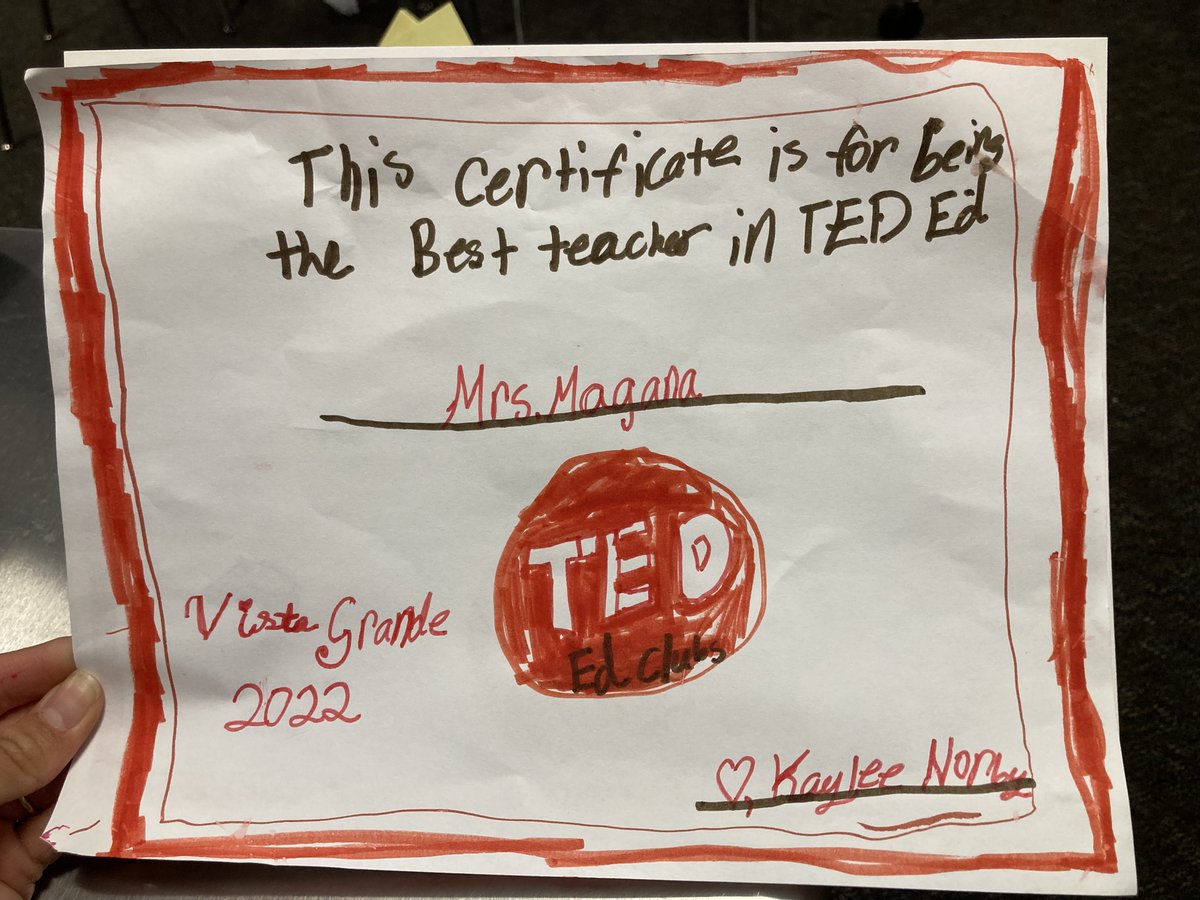 This certificate is for being
the Best teacher in TED Ed
Mrs. Magana
TED
Ed Clubs
Vista Grande
2022
♡, Kaylee Norby